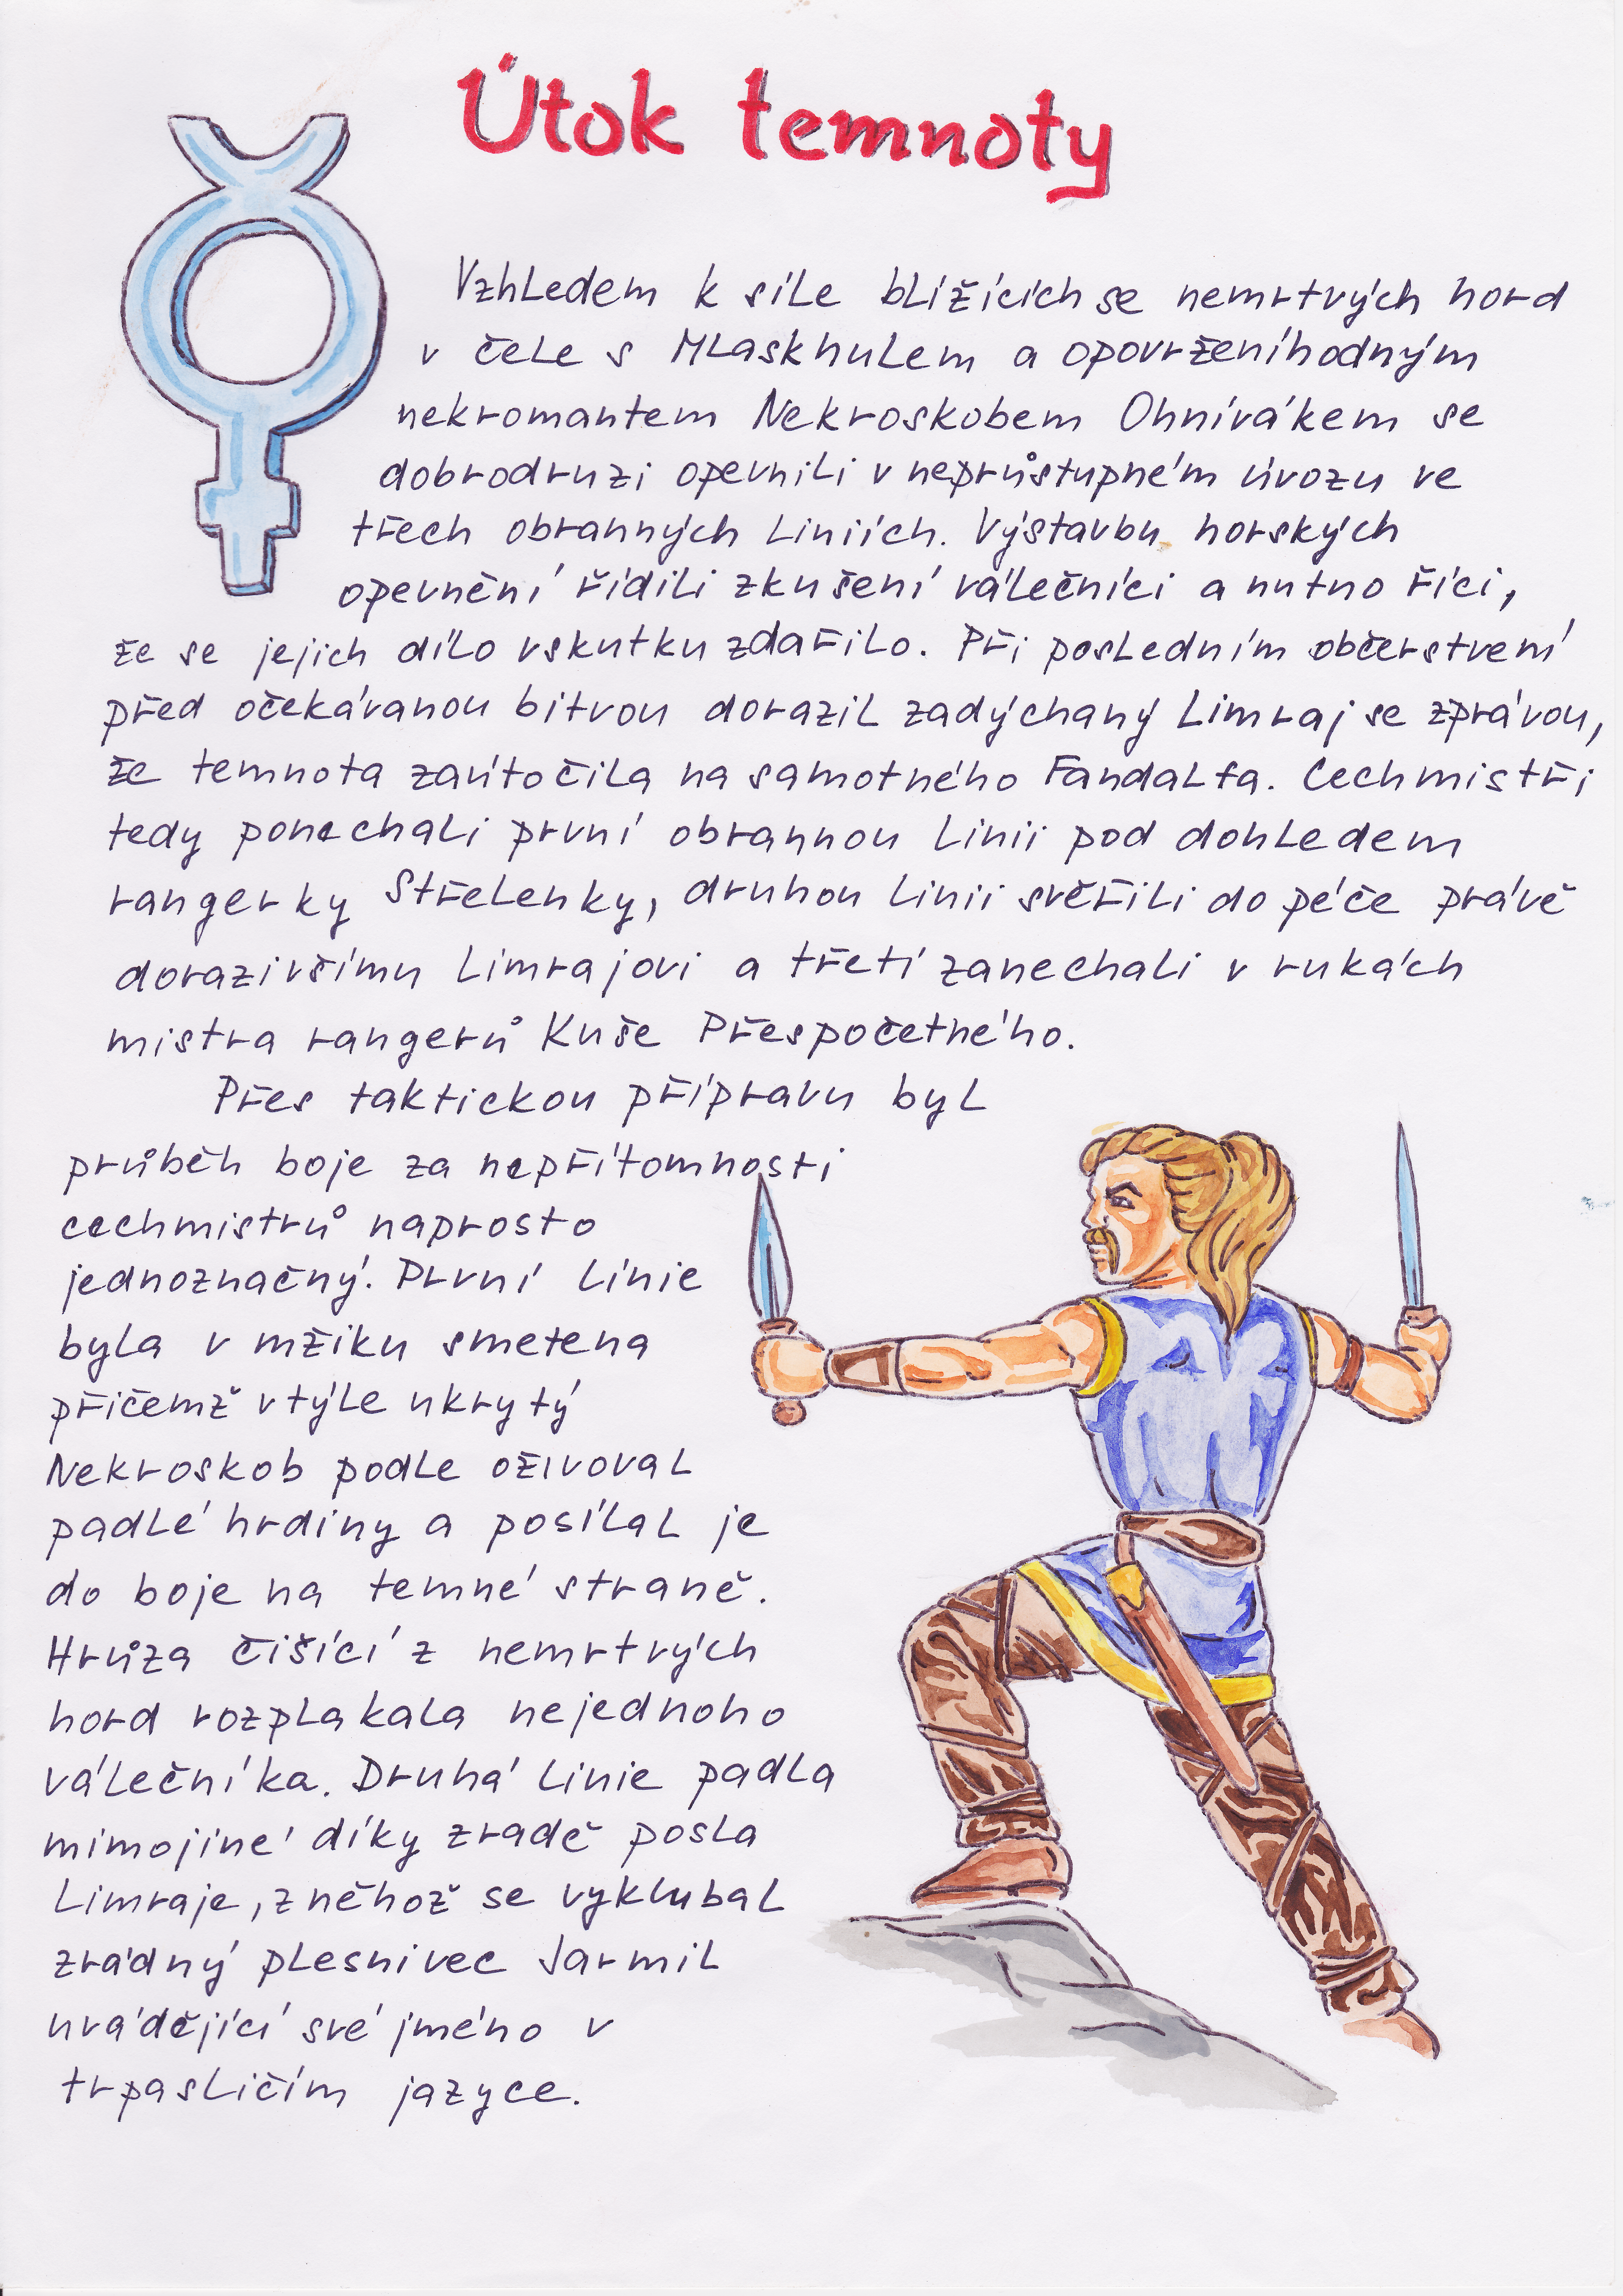 Útok temnoty
Vzhledem k síle blížících se nemrtvých hord
v čele s Mlaskhulem a opovrženíhodným
nekromantem Nekroskobem Ohnivákem se
dobrodruzi opevnili v neprůstupném úvozu ve
třech obranných liniích. Výstavbu horských
opevnění řídili zkušení válečníci a nutno říci,
že se jejich dílo vskutku zdařilo. Při posledním občerstvení
před očekávanou bitvou dorazil zadýchaný Limraj se zprávou,
že temnota zaútočila na samotného Fandalfa. Cechmistři
tedy ponechali první obrannou linii pod dohledem
rangerky Střelenky, druhou linii svěřili do péče právě
dorazivšímu Limrajovi a třetí zanechali v rukách
mistra rangerů Kuše Přespočetného.
Přes taktickou přípravu byl
průběh boje za nepřítomnosti
cechmistrů naprosto
jednoznačný. První linie
byla v mžiku smetena
přičemž v týle ukrytý
Nekroskob podle oživoval
padlé hrdiny a posílal je
do boje na temné straně.
Hrůza čišící z nemrtvých
hord rozplakala nejednoho
válečníka. Druhá linie padla
mimojiné díky zradě posla
Limraje, z něhož se vyklubal
zrádný plesnivec Jarmil
uvádějící své jméno v
trpasličím jazyce.